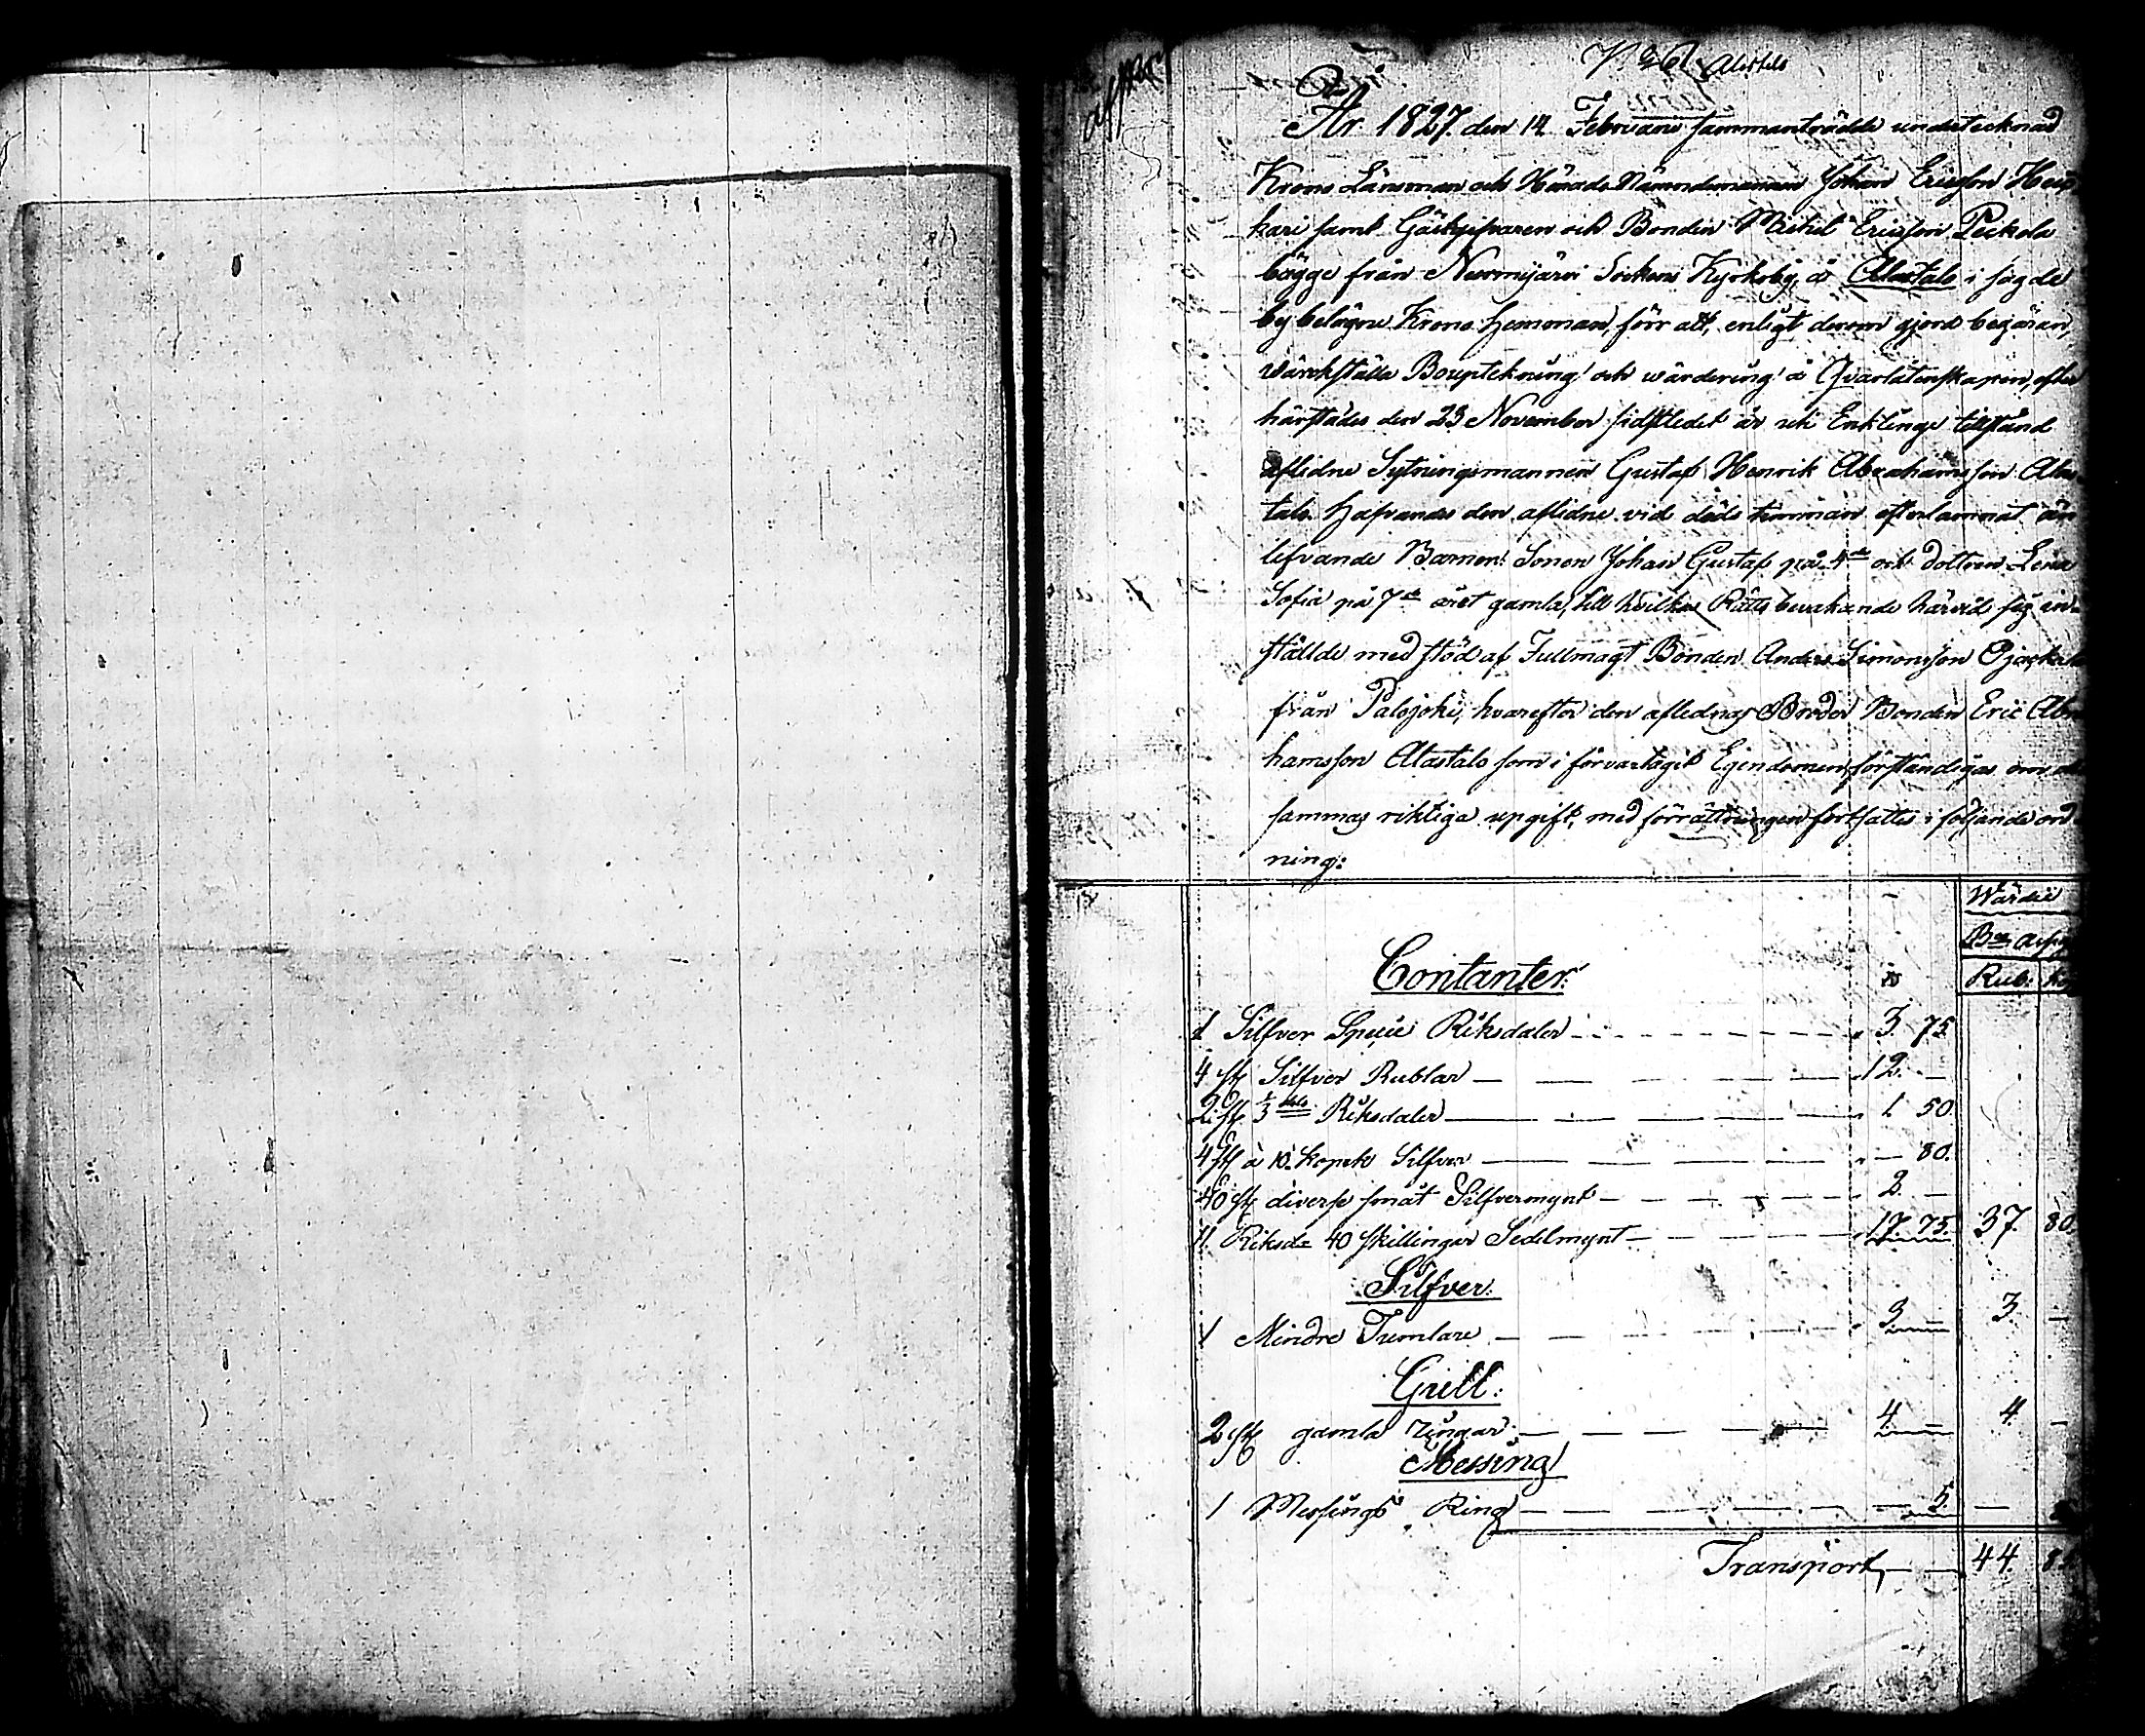 N 261 Alastalo
År 1827. den 14 Februarii sammanträdde undertecknad
Krono Länsman och Härads Nämndemannen Johan Ericsson Heik
kari samt Gästgifvaren och Bonden Michel Ericsson Peckola
bägge från Nurmijärvi Sockens Kyrkoby, å Alastalo i sagde
by belägne Krono hemman, förr att, enligt derom gjord begäran,
värckställa Bouptekning och wärdering å Qvarlåtenskapen, efter
härstädes den 23 November sidstledet år uti Enklinge tillstånd
aflidne Sytningsmannen Gustaf Henrik Abrahamsson Alas
talo. Hafvandes den aflidne vid döds timman efterlämnat än
lefvande Barnen: Sonen Johan Gustaf på 4de och dottren Lena
Sofia på 7de året gamla, till hvilkas Rätts bevakande härvid sig in-
ställde med stöd af Fullmagt Bonden Anders Simonsson Ojackala
från Palojoki, hvarefter den aflednes Broder Bonden Eric Abra
hamsson Alastalo som i förvar tagit Egendomen, förständigas om
sammas riktiga upgift, med förrättningen fortsattes i följande ord-
ning:
Wärde
Bco Assig
Contanter: Rub: kop
1 Silfver Specie Riksdaler 3. 75
4 st Silfver Rublar 12. —
2 st 1/3 dels Riksdaler 1 50.
4 st à 10 kopek Silfver — 80.
40 st diverse smått Silfvermynt 2. —
11. Riksd. 40 skillingar Sedelmynt 17. 75. 37. 80.
Silfver:
1 Mindre Tumlare 3. — 3. —
Gull:
2 st gamla Ringar 4. — 4. —
Messing
1 Messings Ring 5. —
Transport, 44. 8